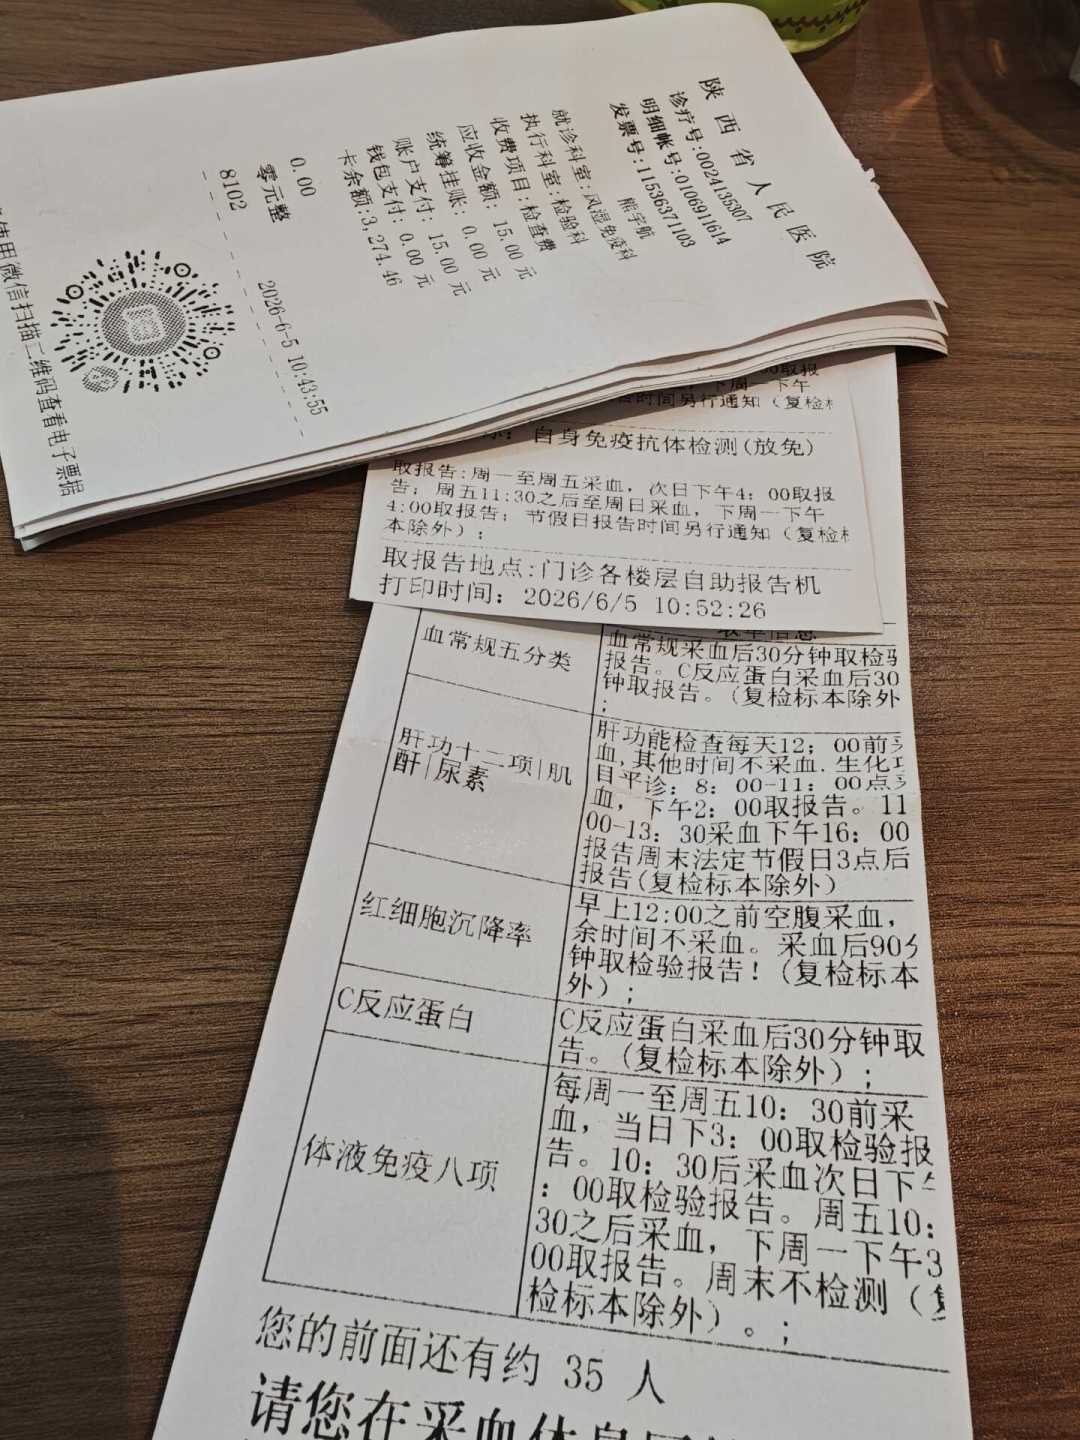 陕西省人民医院
诊疗号:0024135307
明细帐号:0106911614
发票号:11536371103
熊宇航
就诊科室:风湿免疫科
执行科室:检验科
收费项目:检查费
应收金额: 15.00 元
统筹挂账: 0.00 元
账户支付: 15.00 元
钱包支付: 0.00 元
卡余额:3,274.46
0.00
零元整
8102
2026-6-5 10:43:55
使用微信扫描二维码查看电子票据
00取报
，下周一下午
告时间另行通知（复检标
自身免疫抗体检测(放免)
取报告:周一至周五采血，次日下午4：00取报
告；周五11:30之后至周日采血，下周一下午
4:00取报告；节假日报告时间另行通知（复检标
本除外）；
取报告地点:门诊各楼层自助报告机
打印时间：2026/6/5 10:52:26
取单信息
血常规五分类
血常规采血后30分钟取检验
报告。C反应蛋白采血后30
钟取报告。（复检标本除外
；
肝功十二项|肌
酐|尿素
肝功能检查每天12；00前采
血,其他时间不采血.生化项
目平诊：8：00-11：00点采
血，下午2：00取报告。11
00-13：30采血下午16：00
报告周末法定节假日3点后
报告(复检标本除外）
红细胞沉降率
早上12:00之前空腹采血，
余时间不采血。采血后90分
钟取检验报告！（复检标本
外）；
C反应蛋白
C反应蛋白采血后30分钟取
告。（复检标本除外）；
体液免疫八项
每周一至周五10：30前采
血，当日下3：00取检验报
告。10：30后采血次日下午
：00取检验报告。周五10：
30之后采血，下周一下午3
00取报告。周末不检测（复
检标本除外）。；
您的前面还有约 35 人
请您在采血休息区